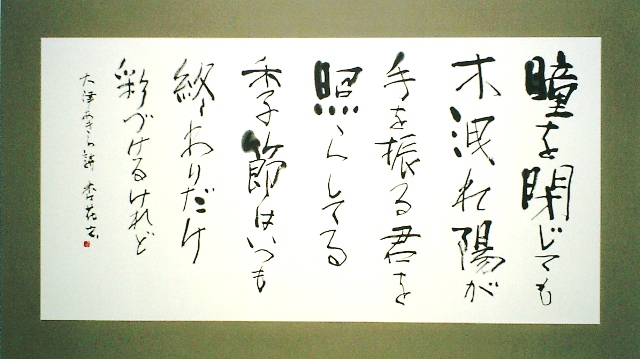 瞳を閉じても
木洩れ陽が
手を振る君を
照らしてる
季節はいつも
終わりだけ
彩づけるけれど
大津あきら詩 杏花書